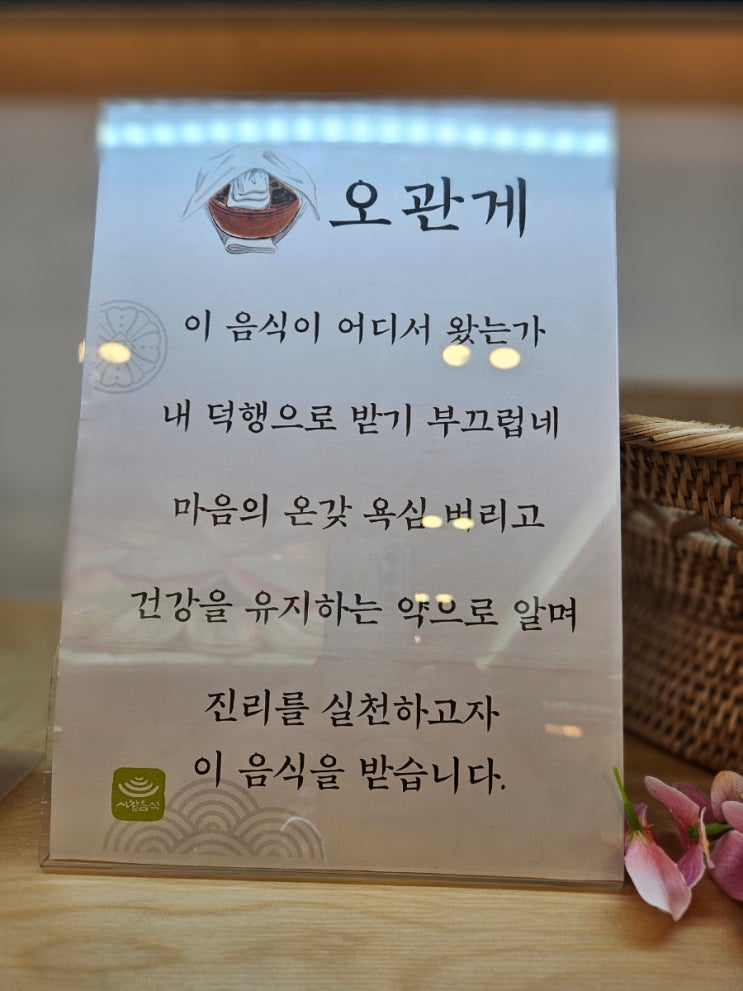 오관게
이 음식이 어디서 왔는가
내 덕행으로 받기 부끄럽네
마음의 온갖 욕심 버리고
건강을 유지하는 약으로 알며
진리를 실천하고자
이 음식을 받습니다.
사찰음식